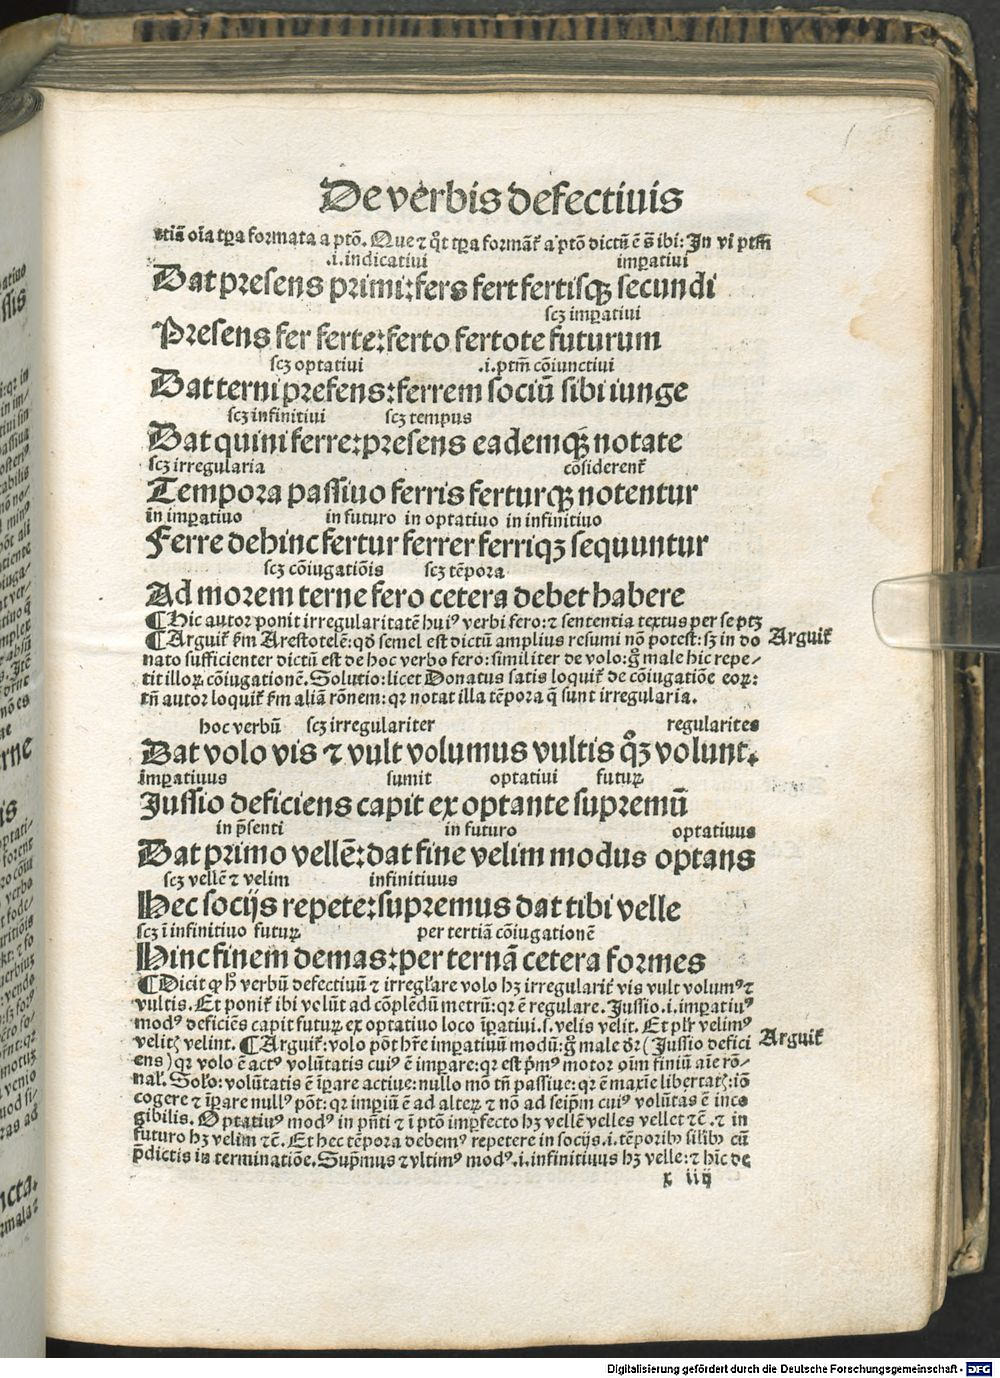 De verbis defectiuis
etiā oīa tp̄a formata a p̄tō. Que ⁊ q̄t tp̄a formāt̄ a p̄tō dictū ē s̄ ibi: In vi p̄tm̄
.i. indicatiui imp̄atiui
Dat presens primi:fers fert fertisqꝫ secundi
scꝫ imp̄atiui
Presens fer ferte:ferto fertote futurum
scꝫ optatiui .i.p̄tm̄ cōiunctiui
Dat terni presens:ferrem sociū sibi iunge
scꝫ infinitiui scꝫ tempus
Dat quini ferre:presens eademqꝫ notate
scꝫ irregularia cōsiderent̄
Tempora passiuo ferris ferturqꝫ notentur
in imp̄atiuo in futuro in optatiuo in infinitiuo
Ferre dehinc fertur ferrer ferriqꝫ sequuntur
scꝫ cōiugatiōis scꝫ tēpora
Ad morem terne fero cetera debet habere
¶ Hic autor ponit irregularitatē huiꝰ verbi fero:⁊ sententia textus per se ptꝫ
¶ Arguit̄ ẜm Arestotelē: qđ semel est dictū amplius resumi nō potest: sꝫ in do Arguit̄
nato sufficienter dictū est de hoc verbo fero: similiter de volo: g̊ male hic repe⸗
tit illoꝝ cōiugationē. Solutio: licet Donatus satis loquit̄ de cōiugatiōe eoꝝ:
tn̄ autor loquit̄ ẜm aliā rōnem: qꝛ notat illa tēpora q̄ sunt irregularia.
hoc verbū scꝫ irregulariter regularites
Dat volo vis ⁊ vult volumus vultis q̄ꝫ volunt.
imp̄atiuus sumit optatiui futuꝝ
Jussio deficiens capit ex optante supremū
in p̄senti in futuro optatiuus
Dat primo vellē:dat fine velim modus optans
scꝫ vellē ⁊ velim infinitiuus
Hec socijs repete:supremus dat tibi velle
scꝫ ī infinitiuo futuꝝ per tertiā cōiugationē
Hinc finem demas:per ternā cetera formes
¶ Dicit ꝙ h̄ verbū defectiuū ⁊ irregl̄are volo hꝫ irregularit̄ vis vult volumꝰ ⁊
vultis. Et ponit̄ ibi volūt ad cōplēdū metrū: qꝛ ē regulare. Jussio .i. imp̄atiuꝰ
modꝰ deficiēs capit futuꝝ ex optatiuo loco īp̄atiui .s. velis velit. Et plr̄ velimꝰ
velitꝭ velint. ¶ Arguit̄: volo pōt hr̄e imp̄atiuū modū: g̊ male dr̄ (Jussio defici Arguit̄
ens) qꝛ volo ē actꝰ volūtatis cuiꝰ ē imp̄are: qꝛ est p̄mꝰ motor oīm finiū aīe rō⸗
nal̄. Solo: volūtatis ē īp̄are actiue: nullo mō tn̄ passiue: qꝛ ē maxīe libertatꝭ: iō
cogere ⁊ īp̄are nullꝰ pōt: qꝛ imp̄iū ē ad alteꝝ ⁊ nō ad seip̄m cuiꝰ volūtas ē inco
gibilis. Optatiuꝰ modꝰ in p̄nti ⁊ ī p̄tō imp̄fecto hꝫ vellē velles vellet ⁊c̄. ⁊ in
futuro hꝫ velim ⁊c̄. Et hec tēpora debemꝰ repetere in socijs .i. tēporibꝰ sil̄ibꝰ cū
p̄dictis in terminatiōe. Sup̄mus ⁊ vltimꝰ modꝰ .i. infinitiuus hꝫ velle: ⁊ hīc de
x iiij
Digitalisierung gefördert durch die Deutsche Forschungsgemeinschaft - DFG